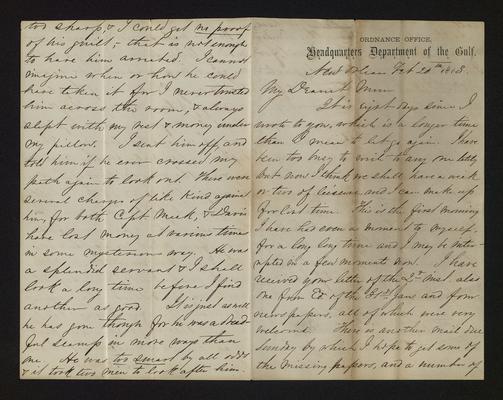 ORDNANCE OFFICE,
Headquarters Department of the Gulf.
New Orleans Feb 20th 1863.
My Dearest Mum
It is eight days since I
wrote to you, which is a longer time
than I mean to let go again. I have
been too busy to write to any one lately
but now I think we shall have a week
or two of leisure and I can make up
for lost time. This is the first morning
I have had even a moment to myself
for a long long time and I may be inter-
rupted in a few moments now. I have
received your letter of the 2d inst. also
one from Ed of the 31st Jany and four
newspapers, all of which were very
welcome. There is another mail due
Sunday by which I hope to get some of
the missing papers, and a number of
too sharp, & I could get no proof
of his guilt,- that is not enough
to have him arrested. I cannot
imagine when or how he could
have taken it for I never trusted
him across the room, & always
slept with my vest & money under
my pillow. I sent him off, and
told him if he ever crossed my
path again to look out. There were
several charges of like kind against
him, for both Capt Meek, & Davis
have lost money at various times
in some mysterious way. He was
a splendid servant & I shall
look a long time before I find
another as good. I'm just as well
he has gone though for he was a dread-
ful scamp in more ways than
one. He was too smart by all odds
& it took two men to look after him.